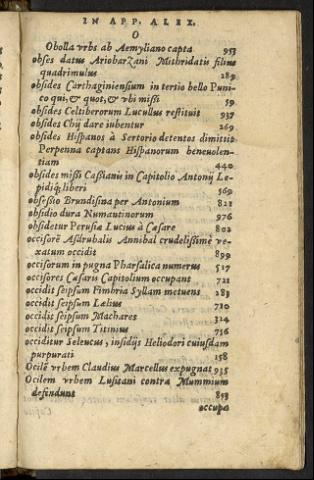 IN APP. ALEX.
O
Obolla vrbs ab Aemyliano capta 953
obses datus AriobarZani Mithridatis filius
quadrimulus 289
obsides Carthaginensium in tertio bello Puni-
co qui, & quot, & vbi missi 59
obsides Celtiberorum Lucullus restituit 937
obsides Chij dare iubentur 269
obsides Hispanos à Sertorio detentos dimittit
Perpenna captans Hispanorum beneuolen-
tiam 440
obsides missi Cassianis in Capitolio Antonij Le-
pidiq; liberi 569
obsessio Brundisina per Antonium 821
obsidio dura Numantinorum 976
obsidetur Perusia Lucius à Caesare 802
occisorē Asdrubalis Annibal crudelissimè ve-
xatum occidit 899
occisorum in pugna Pharsalica numerus 517
occisores Caesaris Capitolium occupant 721
occidit seipsum Fimbria Syllam metuens 283
occidit seipsum Laelius 710
occidit seipsum Machares 314
occidit seipsum Titinius 756
occiditur Seleucus, insidijs Heliodori cuiusdam
purpurati 158
Ocilē vrbem Claudius Marcellus expugnat 935
Ocilem vrbem Lusitani contra Mummium
defendunt 853
occupa